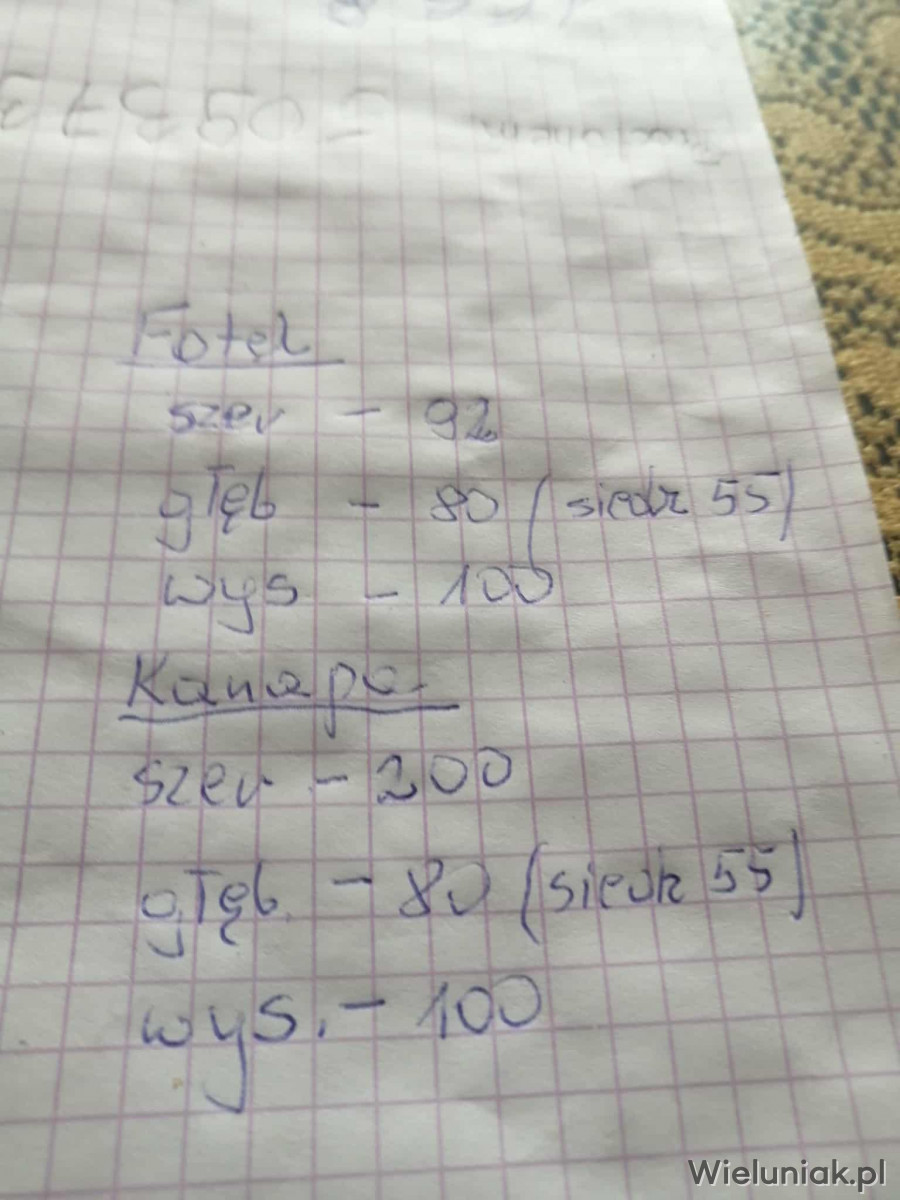 Fotel
szer - 92
głęb - 80 (siedz 55)
wys - 100
Kanapa
szer - 200
głęb. - 80 (siedz 55)
wys. - 100
Wieluniak.pl